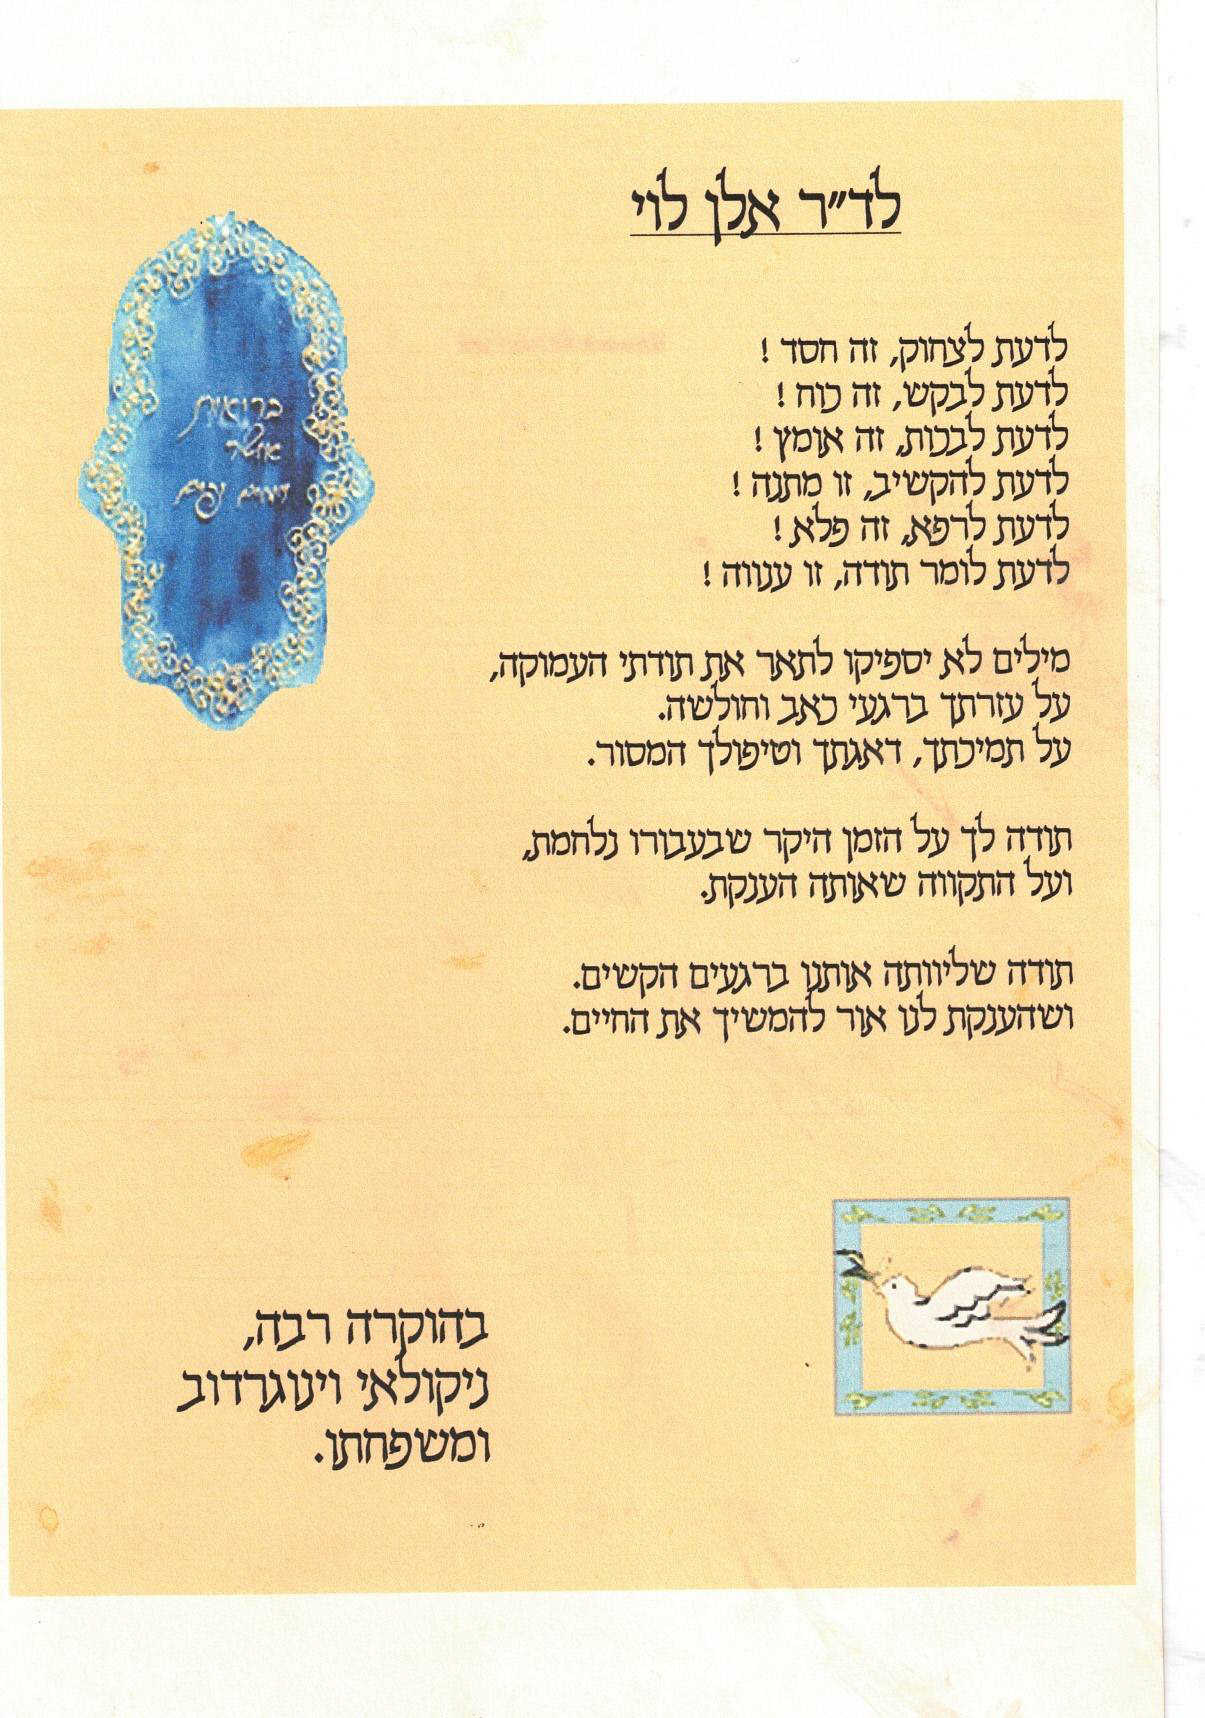 לד"ר אלן לוי
לדעת לצחוק, זה חסד !
לדעת לבקש, זה כוח !
לדעת לבכות, זה אומץ !
לדעת להקשיב, זו מתנה !
לדעת לרפא, זה פלא !
לדעת לומר תודה, זו ענווה !
מילים לא יספיקו לתאר את תודתי העמוקה,
על עזרתך ברגעי כאב וחולשה.
על תמיכתך, דאגתך וטיפולך המסור.
תודה לך על הזמן היקר שבעבורו נלחמת,
ועל התקווה שאותה הענקת.
תודה שליוותה אותנו ברגעים הקשים.
ושהענקת לנו אור להמשיך את החיים.
בהוקרה רבה,
ניקולאי וינוגרדוב
ומשפחתו.
בריאות
אושר